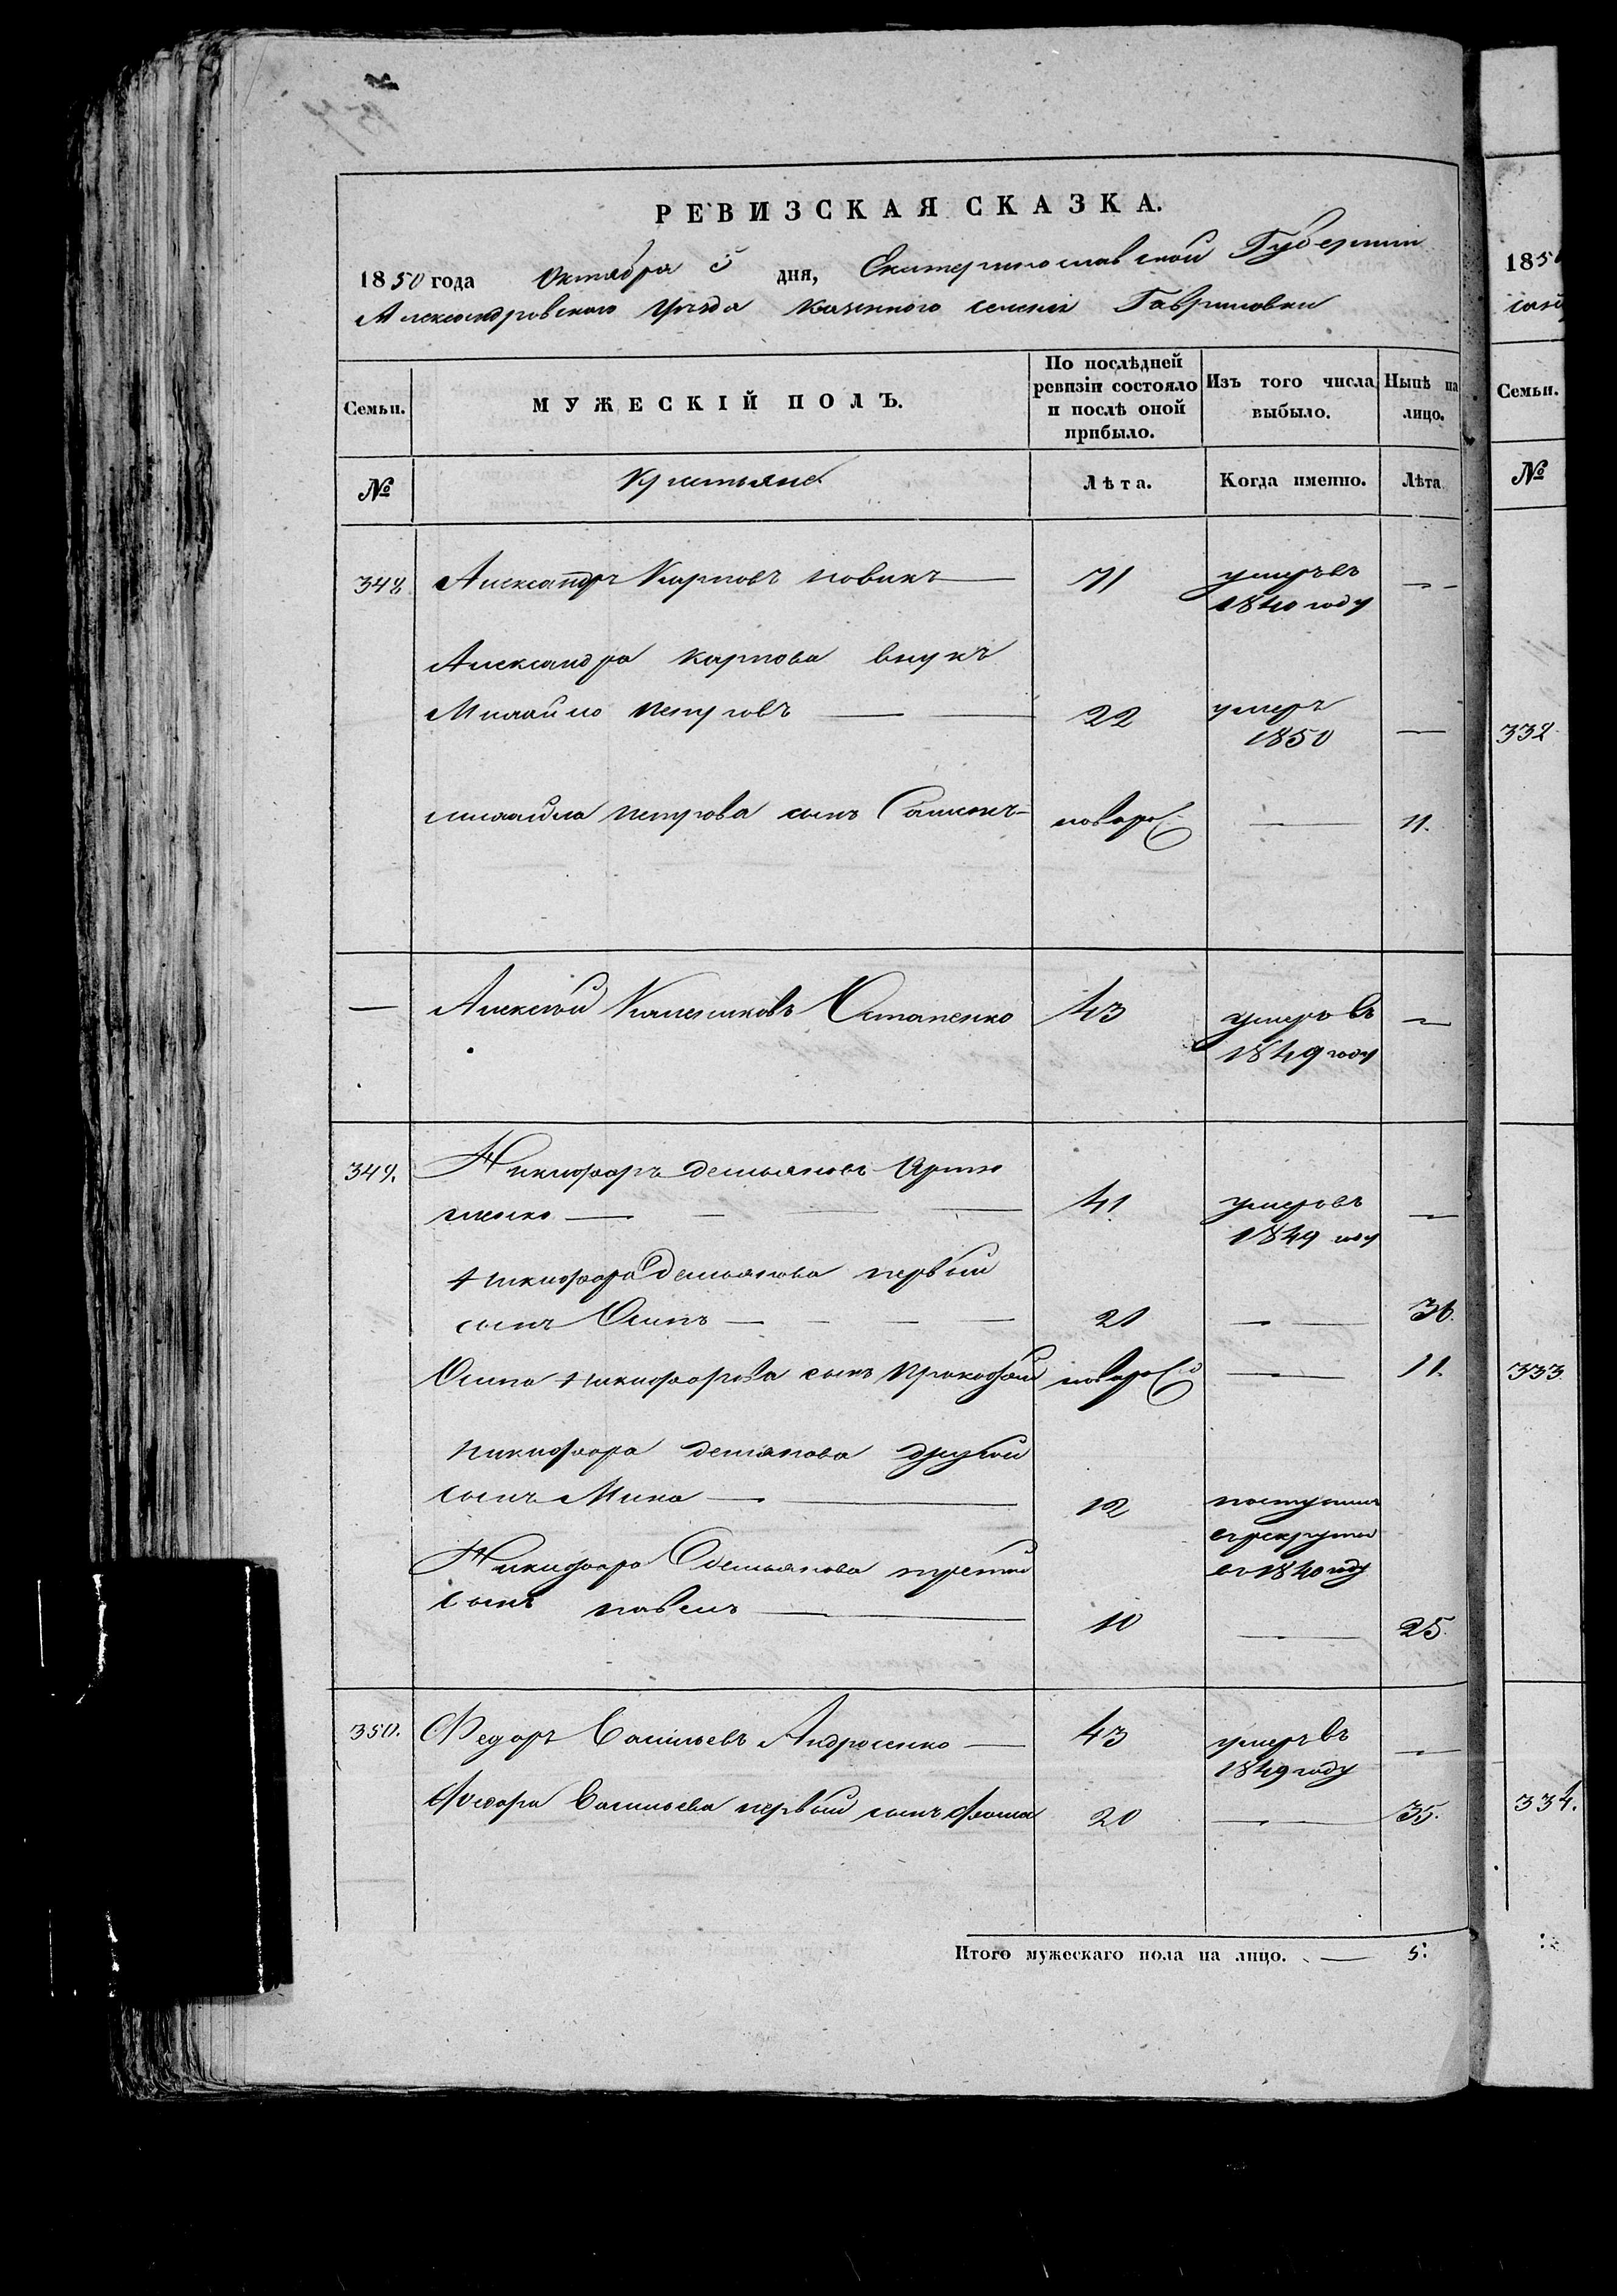 РЕВИЗСКАЯ СКАЗКА.
1850 года Октября 5 дня, Екатеринославской Губернии
Александровского уезда казенного селения Гавриловки
Семьи. МУЖЕСКІЙ ПОЛЪ. По послѣдней ревизіи состояло и послѣ оной прибыло. Изъ того числа выбыло. Нынѣ на лицо.
№ Крестьяне Лѣта. Когда именно. Лѣта
348 Александръ Карповъ Новикъ — 71 умеръ въ —
1840 году
Александра Карпова внукъ
Михайло Петровъ — 22 умеръ —
1850
Михайла Петрова сынъ Самсонъ новорож — 11.
— Алексей Остапенко 43 умеръ въ —
1849 году
349. Никифоръ Демьяновъ
ленко — 41 умеръ въ —
1849 году
Никифора Демьянова первый
сынъ Осипъ — 21 — 36.
Осипа Никифорова сынъ Прокофий новорож — 11.
Никифора Демянова другой
сынъ Мина — 12 поступилъ
в рекруты
в 1840 году
Никифора Демьянова третий
сынъ Павелъ — 10 — 25.
350. Федоръ Васильевъ Андросенко — 43 умеръ въ —
1849 году
Федора Васильева первый сынъ Фома 20 — 35.
Итого мужескаго пола на лицо. — 5:
1850
Семьи.
№
332
333
334.